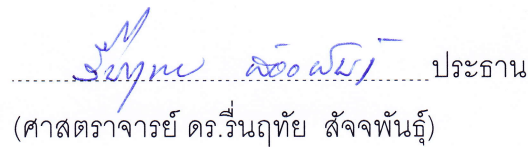 รื่นฤทัย สัจจพันธุ์ ประธาน
(ศาสตราจารย์ ดร.รื่นฤทัย สัจจพันธุ์)